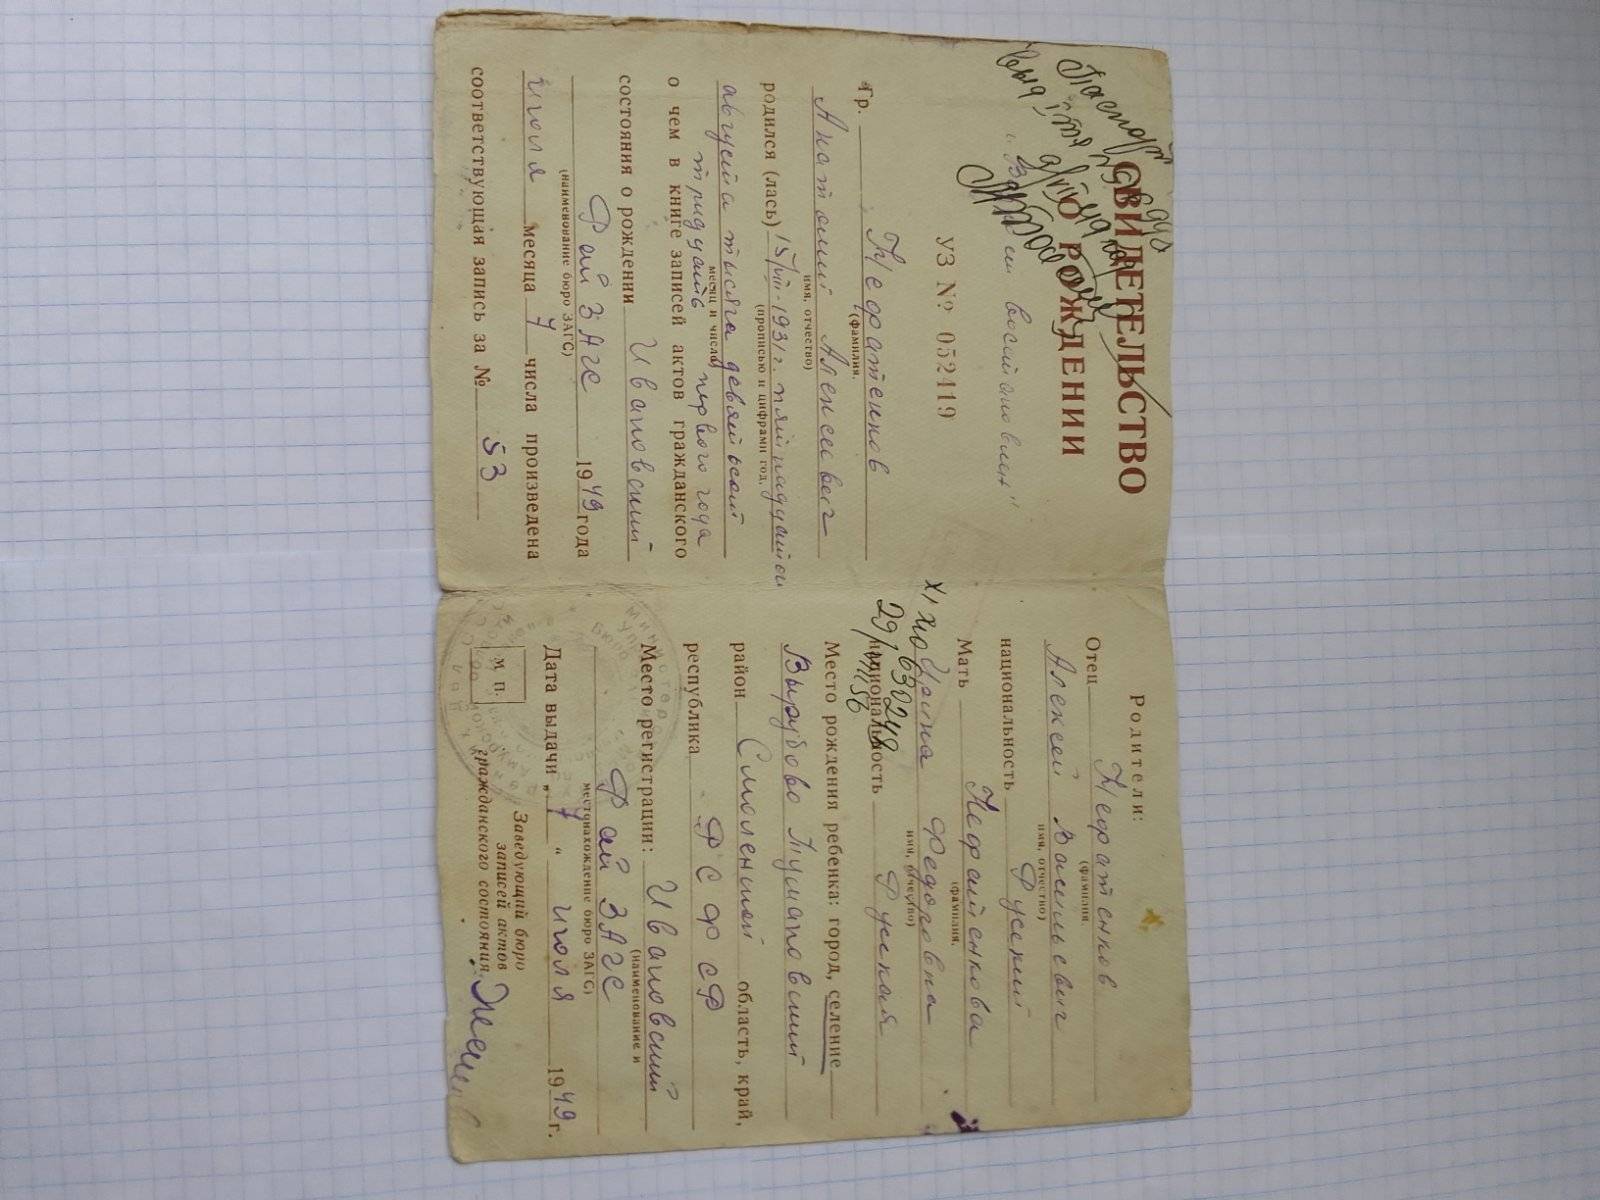 СВИДЕТЕЛЬСТВО
О РОЖДЕНИИ
восстановлен"
УЗ № 052419
Гр. Нефатенков
(фамилия,
Анатолий Алексеевич
имя, отчество)
родился (лась) 15/VIII-1931г. пятнадцатого
(прописью и цифрами год,
августа тысяча девятьсот
месяц и число)
тридцать первого года
о чем в книге записей актов гражданского
состояния о рождении Ивановский
Рай ЗАГС 1949 года
(наименование бюро ЗАГС)
июля месяца 7 числа произведена
соответствующая запись за № 53
Родители:
Отец Нефатенков
(фамилия
Алексей Васильевич
имя, отчество)
национальность Русский
Мать Нефатенкова
(фамилия,
Ирина Федоровна
имя, отчество)
XI ХЮ 630248
национальность Русская
29/VIII 56
Место рождения ребенка: город, селение
Вырубово Тумановский
район Смоленской область, край,
республика РСФСР
Место регистрации: Ивановский
(наименование и
Рай ЗАГС
местонахождение бюро ЗАГС)
Дата выдачи „7“ июля 1949 г.
М. П.
Заведующий бюро
записей актов
гражданского состояния